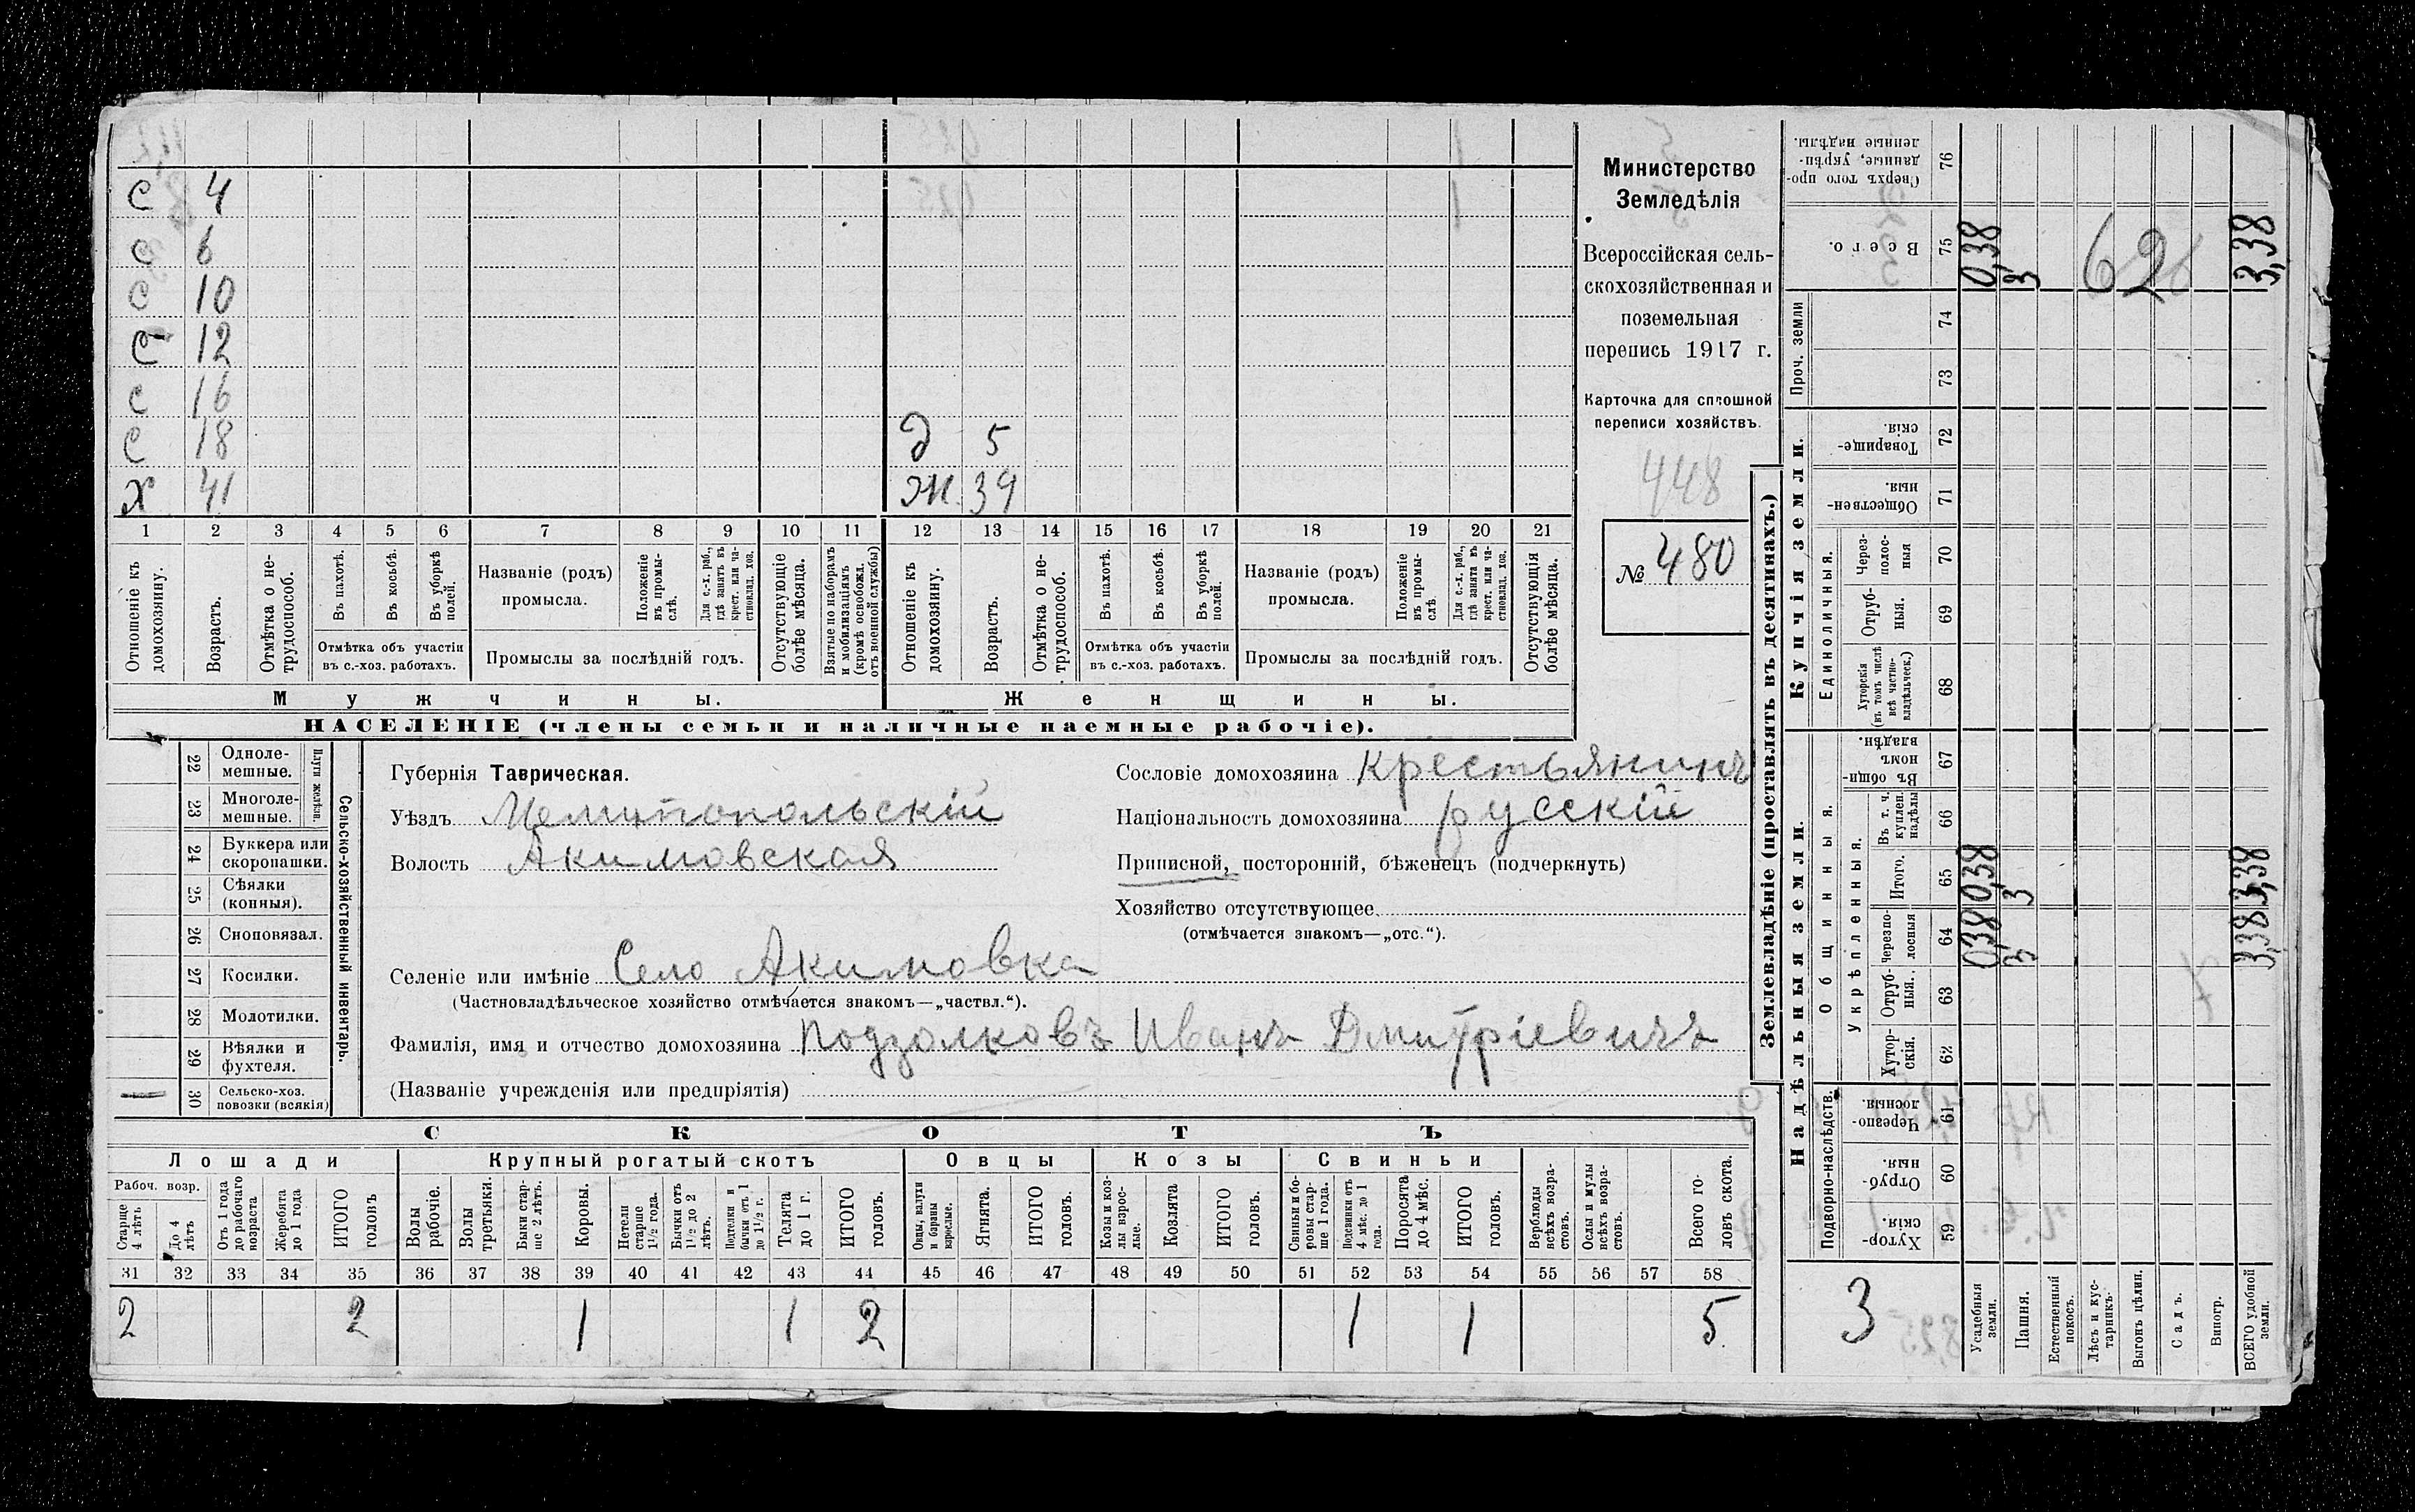 С 4
С 6
С 10
С 12
С 16
С 18 д 5
Х 41 Ж. 39
1 2 3 4 5 6 7 8 9 10 11 12 13 14 15 16 17 18 19 20 21
Отношеніе къ домохозяину.
Возрастъ.
Отмѣтка о не-трудоспособ.
Въ пахотѣ.
Въ косьбѣ.
Въ уборкѣ полей.
Отмѣтка объ участіи въ с.-хоз. работахъ.
Названіе (родъ) промысла.
Положеніе въ промы-слѣ.
Для с.-х. раб., гдѣ занятъ въ крест. или ча-стновлад. хоз.
Промыслы за послѣдній годъ.
Отсутствующіе болѣе мѣсяца.
Взятые по наборамъ и мобилизаціямъ (кромѣ освобожд. отъ военной службы)
Отношеніе къ домохозяину.
Возрастъ.
Отмѣтка о не-трудоспособ.
Въ пахотѣ.
Въ косьбѣ.
Въ уборкѣ полей.
Отмѣтка объ участіи въ с.-хоз. работахъ.
Названіе (родъ) промысла.
Положеніе въ промы-слѣ
Для с.-х. раб., гдѣ занята въ крест. или ча-стновлад. хоз.
Промыслы за послѣдній годъ.
Отсутствующія болѣе мѣсяца.
Мужчины. Женщины.
НАСЕЛЕНІЕ (члены семьи и наличные наемные рабочіе).
Министерство
Земледѣлія
Всероссійская сель-
скохозяйственная и
поземельная
перепись 1917 г.
Карточка для сплошной
переписи хозяйствъ.
448
№ 480
22 Одноле-мешные.
23 Многоле-мешные.
Плуги желѣзн.
24 Буккера или скоропашки.
25 Сѣялки (конныя).
26 Сноповязал.
27 Косилки.
28 Молотилки.
29 Вѣялки и фухтеля.
30 Сельско-хоз. повозки (всякія)
Сельско-хозяйственный инвентарь.
Губернія Таврическая.
Уѣздъ Мелитопольскій
Волость Акимовская
Сословіе домохозяина Крестьянинъ
Національность домохозяина русскій
Приписной, посторонній, бѣженецъ (подчеркнуть)
Хозяйство отсутствующее
(отмѣчается знакомъ—„отс.“).
Селеніе или имѣніе Село Акимовка
(Частновладѣльческое хозяйство отмѣчается знакомъ—„частвл.“).
Фамилія, имя и отчество домохозяина Подзолковъ Иванъ Дмитріевичъ
(Названіе учрежденія или предпріятія)
СКОТЪ
Лошади Крупный рогатый скотъ Овцы Козы Свиньи
Рабоч. возр.
Старше 4 лѣтъ
До 4 лѣтъ
Отъ 1 года до рабочаго возраста
Жеребята до 1 года
ИТОГО головъ
Волы рабочіе.
Волы третьяки.
Быки стар-ше 2 лѣтъ.
Коровы.
Нетели старше 1½ года.
Бычки отъ 1½ до 2 лѣтъ.
Подтелки и бычки отъ 1 до 1½ г.
Телята до 1 г.
ИТОГО головъ.
Овцы, валухи и бараны взрослые.
Ягнята.
ИТОГО головъ.
Козы и коз-лы взрос-лые.
Козлята
ИТОГО головъ.
Свиньи и бо-ровы стар-ше 1 года.
Подсвинки отъ 4 мѣс. до 1 года.
Поросята до 4 мѣс.
ИТОГО головъ.
Верблюды всѣхъ возра-стовъ.
Ослы и мулы всѣхъ возра-стовъ.
Всего го-ловъ скота.
31 32 33 34 35 36 37 38 39 40 41 42 43 44 45 46 47 48 49 50 51 52 53 54 55 56 57 58
2 2 1 1 2 1 1 5
Землевладѣніе (проставлять въ десятинахъ.)
Надѣльныя земли. Купчія земли. Проч. земли
Подворно-наслѣдств.
Общинныя.
Укрѣпленныя.
Единоличныя.
Сверхъ того про-данные, укрѣп-ленные надѣлы. 76
Всего. 75 0,38 3 62 3,38
74
73
Товарище-скія. 72
Обществен-ныя. 71
Через-полос-ныя 70
Отруб-ныя. 69
Хуторскія (въ томъ числѣ всѣ частно-владѣльческ.) 68
Въ общин-номъ владѣн. 67
Въ т. ч. куплен. надѣлы 66
Итого. 65 0,38 3 3,38
Черезпо-лосныя 64 0,38 3 3,38
Отруб-ныя. 63
Хутор-скія. 62
Черезпо-лосныя. 61
Отруб-ныя. 60
Хутор-скія. 59
3
Усадебныя земли.
Пашня.
Естественный покосъ.
Лѣсъ и кус-тарникъ.
Выгонъ цѣлин.
Садъ.
Виногр.
ВСЕГО удобной земли.